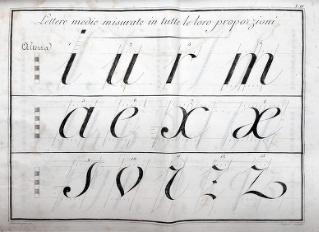 Lettere medie misurate in tutte le loro proporzioni
Altezza
i u r m
a e x æ
s v z